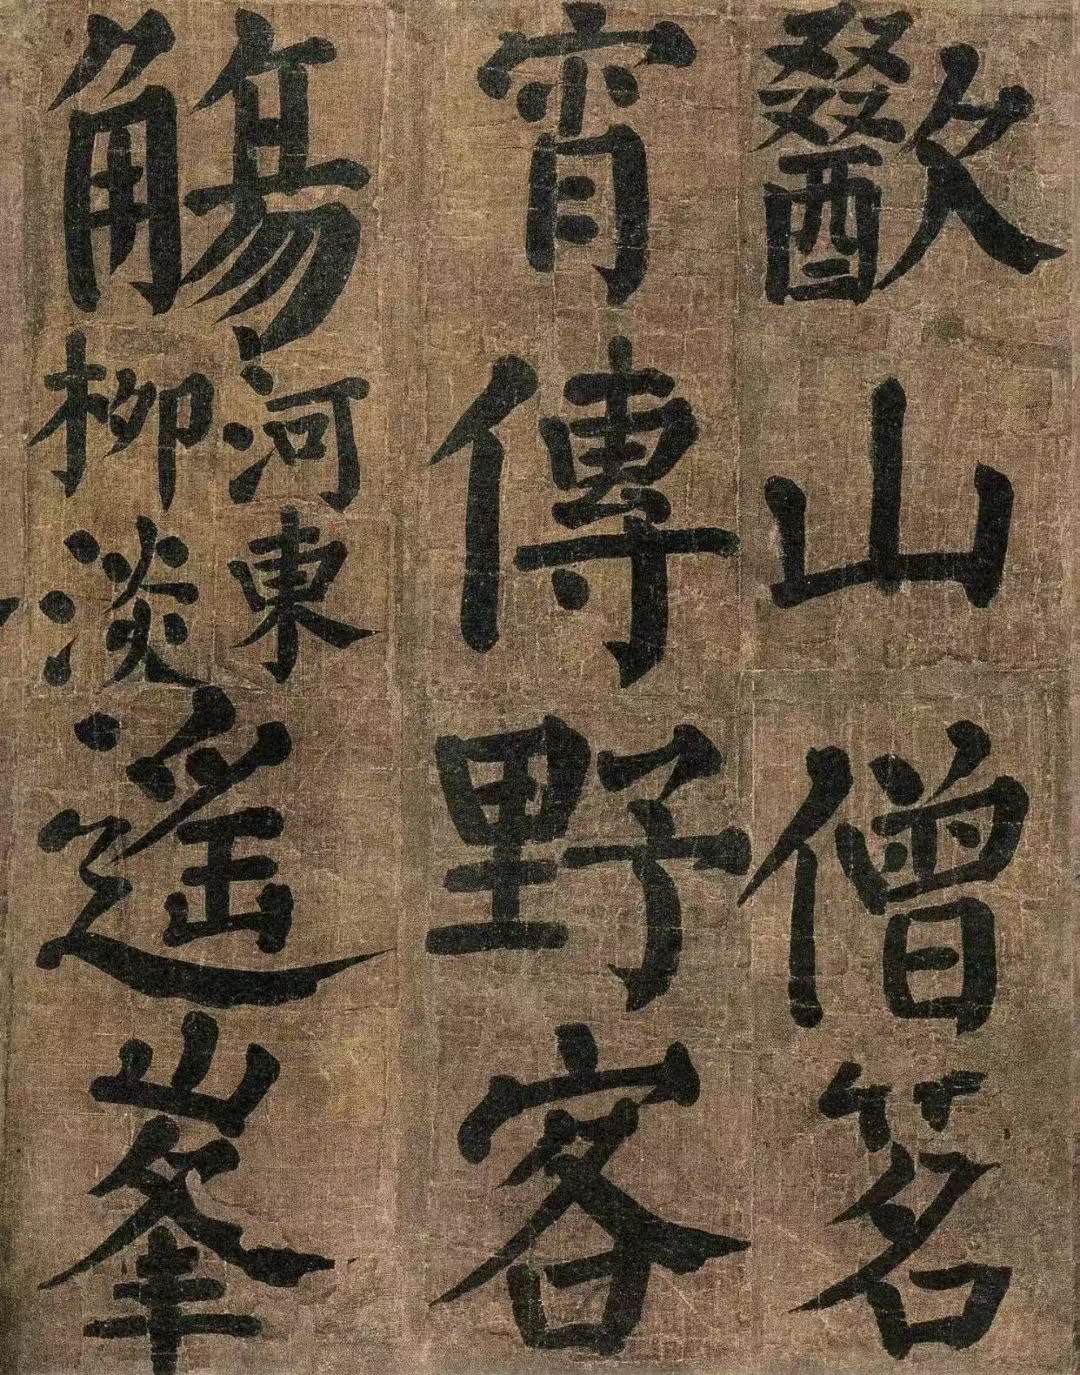 歠山僧茗
宵傳野客
觴
河東
柳淡
遙峯